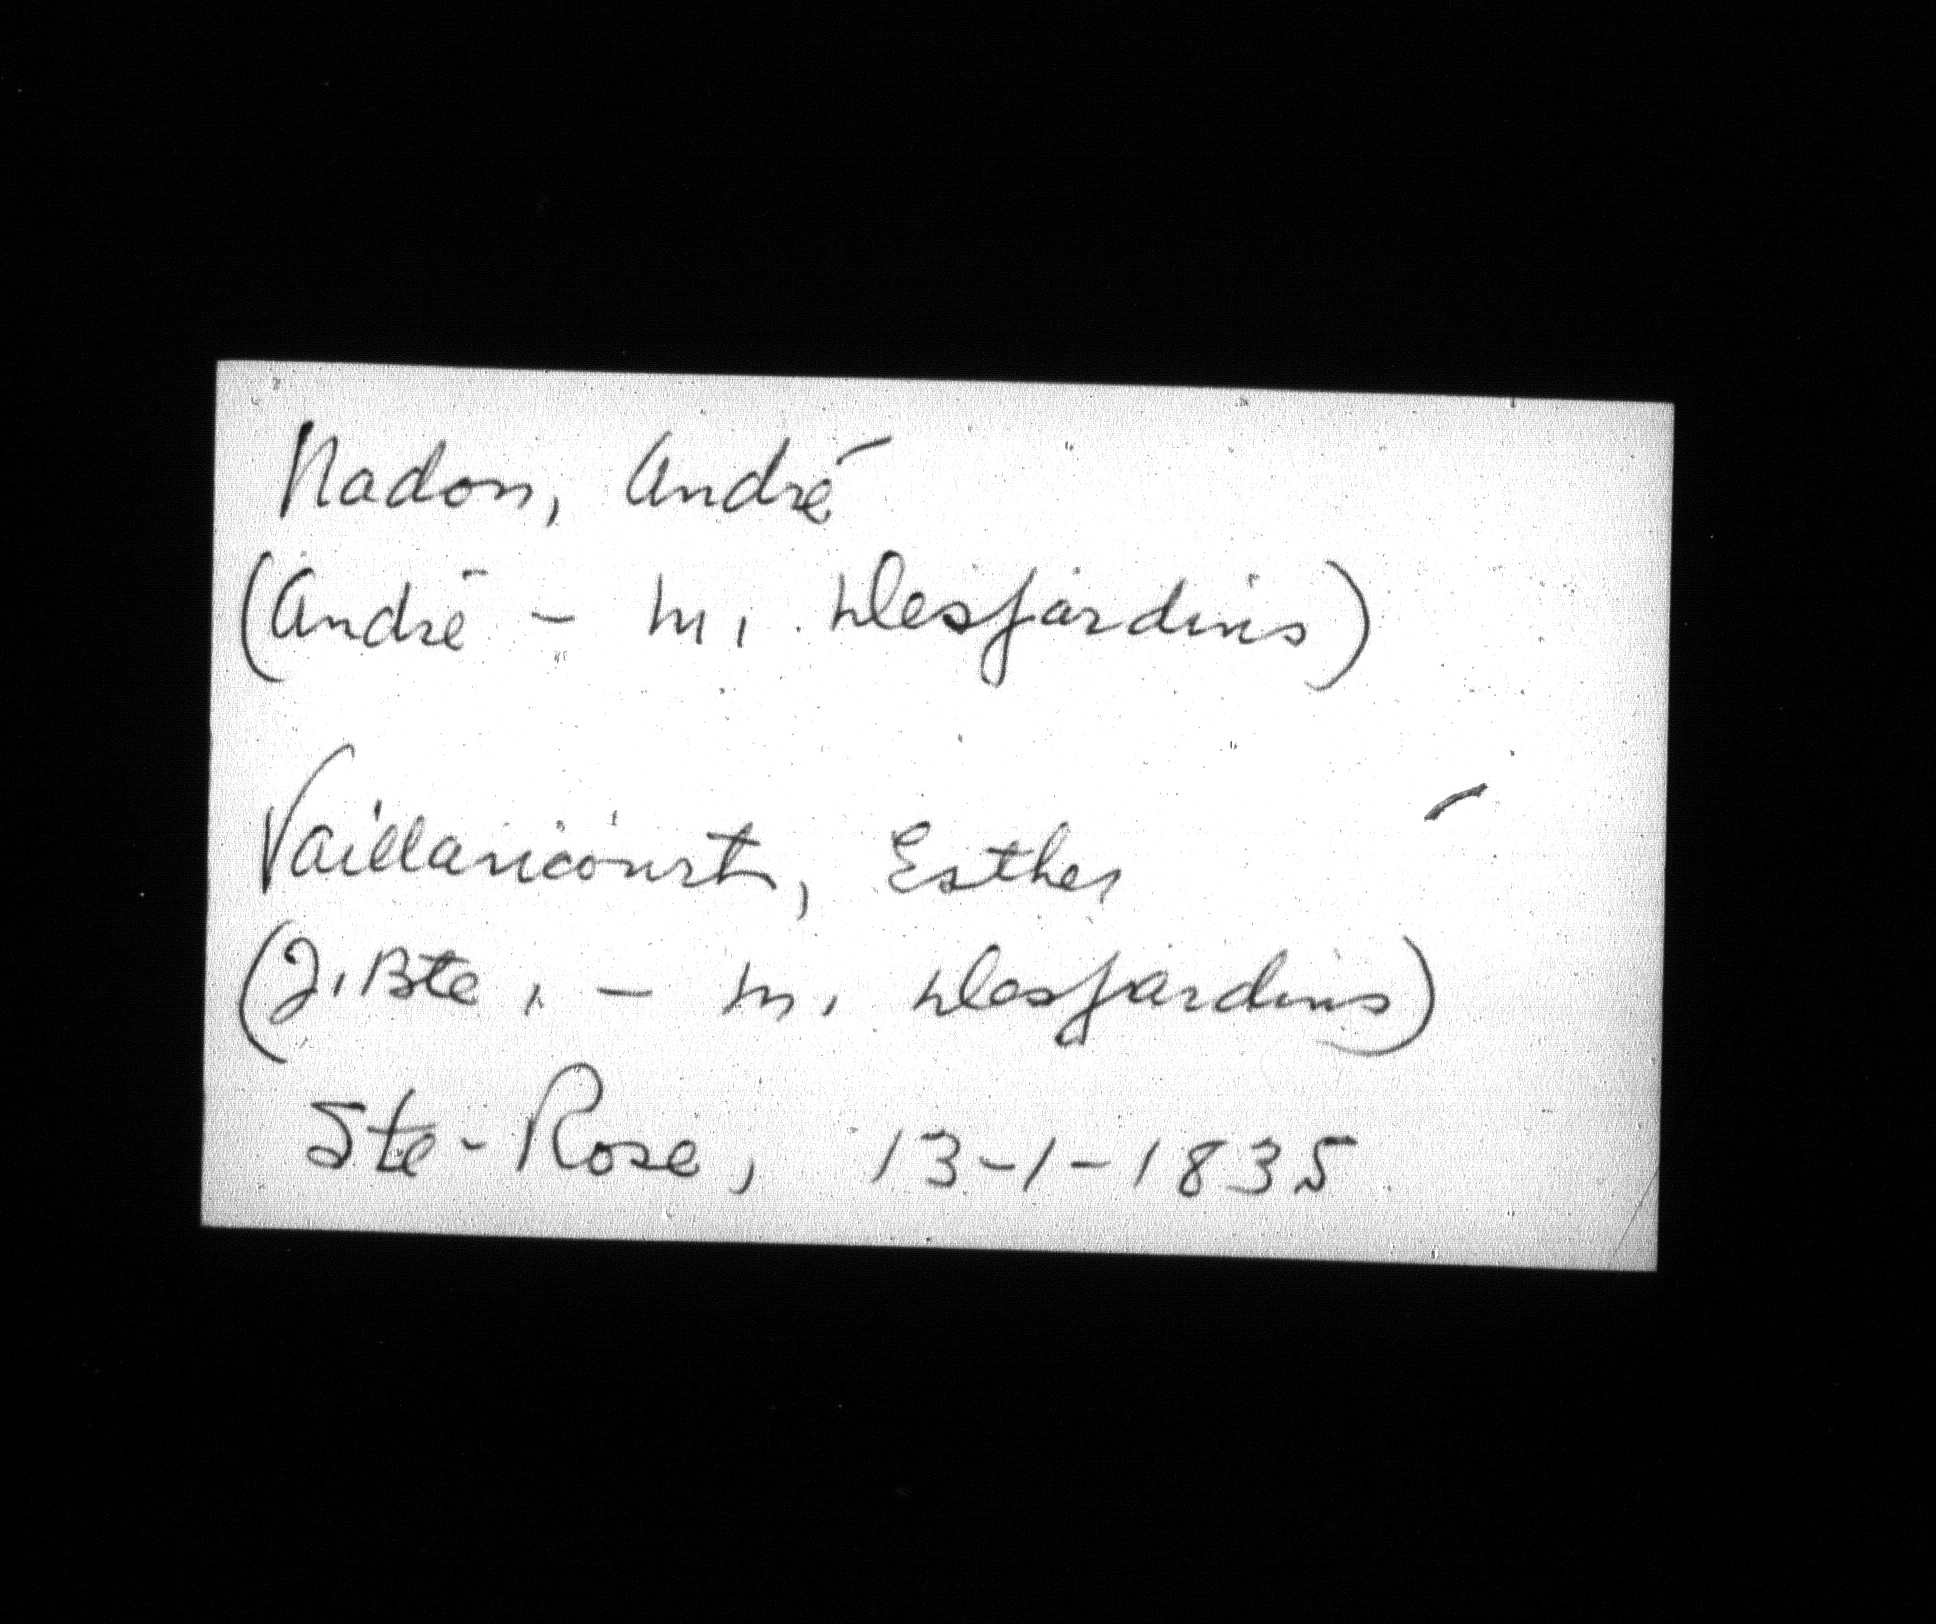 Nadon, André
(André - m. Desjardins)
Vaillancourt, Esther
(J.Bte. - m. Desjardins)
Ste-Rose, 13-1-1835